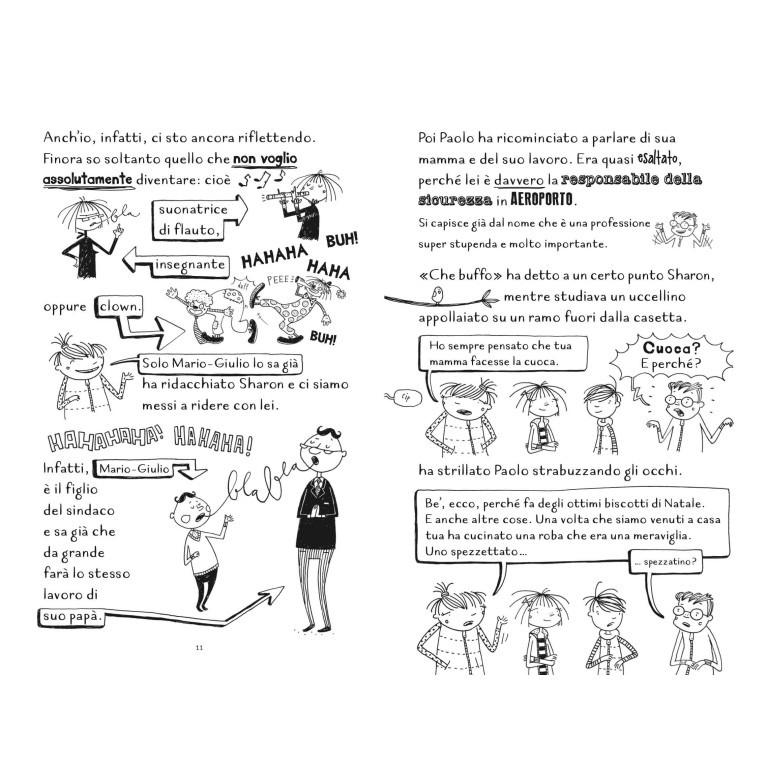 Anch'io, infatti, ci sto ancora riflettendo.
Finora so soltanto quello che non voglio
assolutamente diventare: cioè
bla
suonatrice
di flauto,
BUH!
insegnante
HAHAHA
HAHA
PEEE!
oppure clown.
BUH!
Solo Mario-Giulio lo sa già
ha ridacchiato Sharon e ci siamo
messi a ridere con lei.
HAHAHAHA! HAHAHA!
Infatti, Mario-Giulio
è il figlio
del sindaco
e sa già che
da grande
farà lo stesso
lavoro di
suo papà.
blablabla
11
Poi Paolo ha ricominciato a parlare di sua
mamma e del suo lavoro. Era quasi esaltato,
perché lei è davvero la responsabile della
sicurezza in AEROPORTO.
Si capisce già dal nome che è una professione
super stupenda e molto importante.
«Che buffo» ha detto a un certo punto Sharon,
mentre studiava un uccellino
appollaiato su un ramo fuori dalla casetta.
Ho sempre pensato che tua
mamma facesse la cuoca.
Cuoca?
E perché?
cip
ha strillato Paolo strabuzzando gli occhi.
Be', ecco, perché fa degli ottimi biscotti di Natale.
E anche altre cose. Una volta che siamo venuti a casa
tua ha cucinato una roba che era una meraviglia.
Uno spezzettato...
... spezzatino?